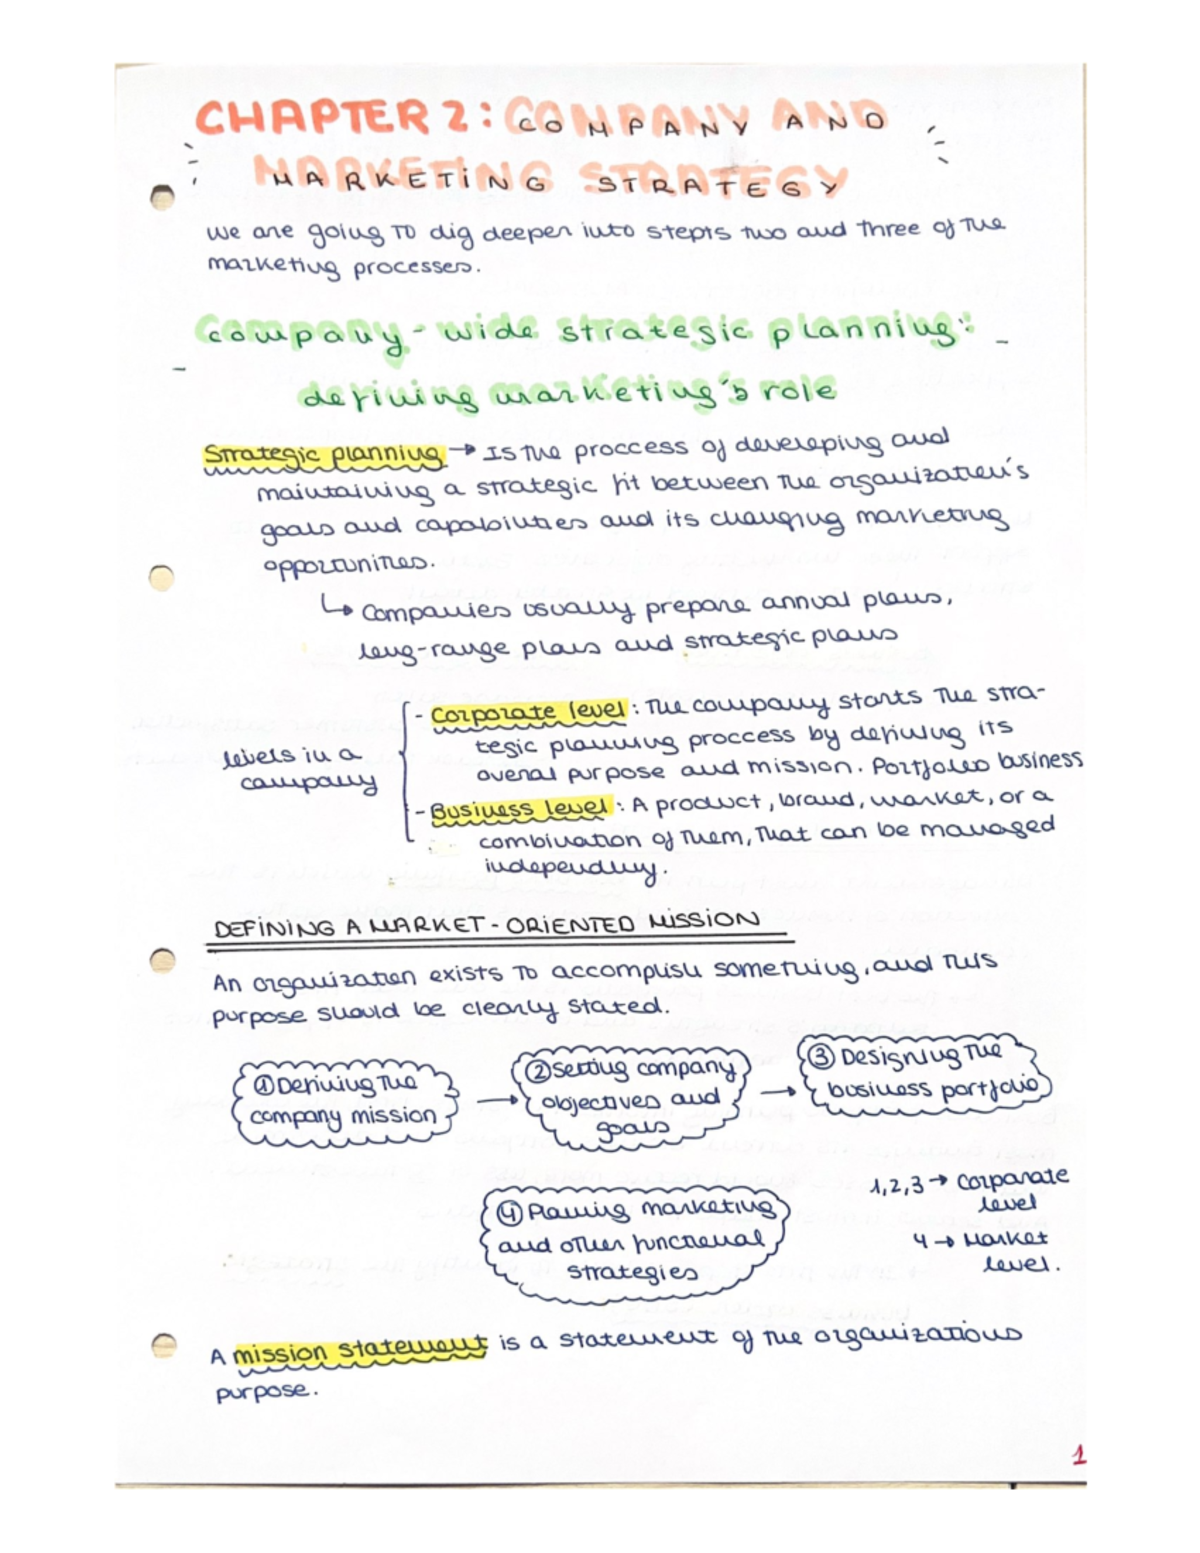 CHAPTER 2: COMPANY AND
MARKETING STRATEGY
We are going to dig deeper into stepts two and three of the
marketing processes.
Company-wide strategic planning:
defining marketing's role
Strategic planning → Is the proccess of developing and
maintaining a strategic fit between the organization's
goals and capabilities and its changing marketing
opportunities.
↳ Companies usually prepare annual plans,
long-range plans and strategic plans
levels in a
company
- Corporate level: The company starts the stra-
tegic planning proccess by defining its
overal purpose and mission. Portfolio business
- Business level: A product, brand, market, or a
combination of them, that can be managed
independly.
DEFINING A MARKET-ORIENTED MISSION
An organization exists to accomplish something, and this
purpose should be clearly stated.
① Defining the
company mission
→
② Setting company
objectives and
goals
→
③ Designing the
business portfolio
④ Planning marketing
and other functional
strategies
1,2,3 → Corporate
level
4 → Market
level.
A mission statement is a statement of the organizations
purpose.
1